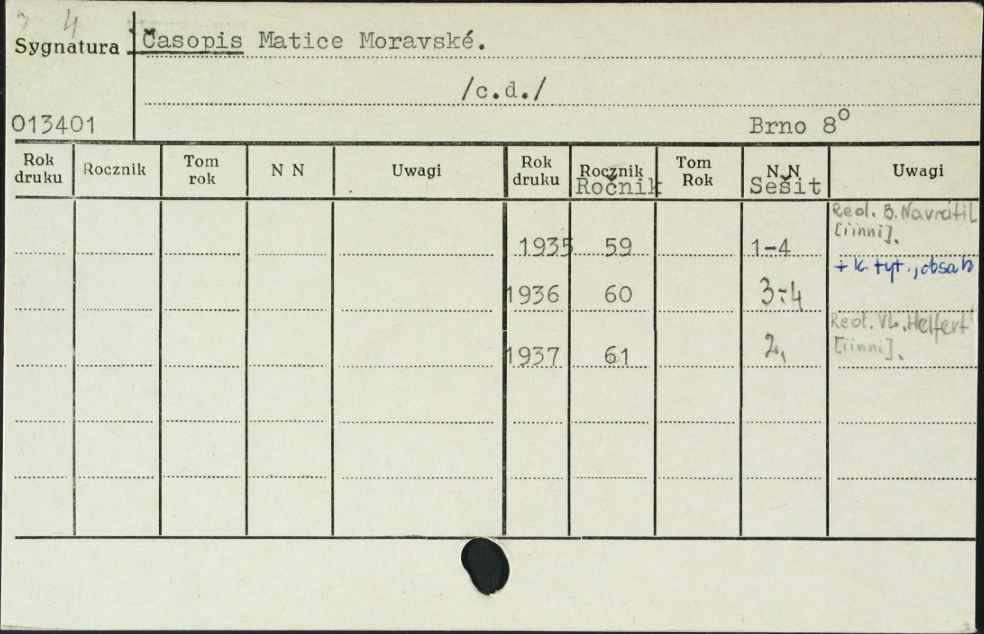 4
Sygnatura Časopis Matice Moravské.
/c.d./
013401 Brno 8°
Rok druku Rocznik Tom rok N N Uwagi Rok druku Rocznik Tom Rok N N Uwagi
Ročnik Sešit
Red. B. Navrátil
[i inni].
1935 59 1-4
+ k. tyt., obsah
1936 60 3-4
Red. Vl. Helfert
1937 61 2, [i inni].